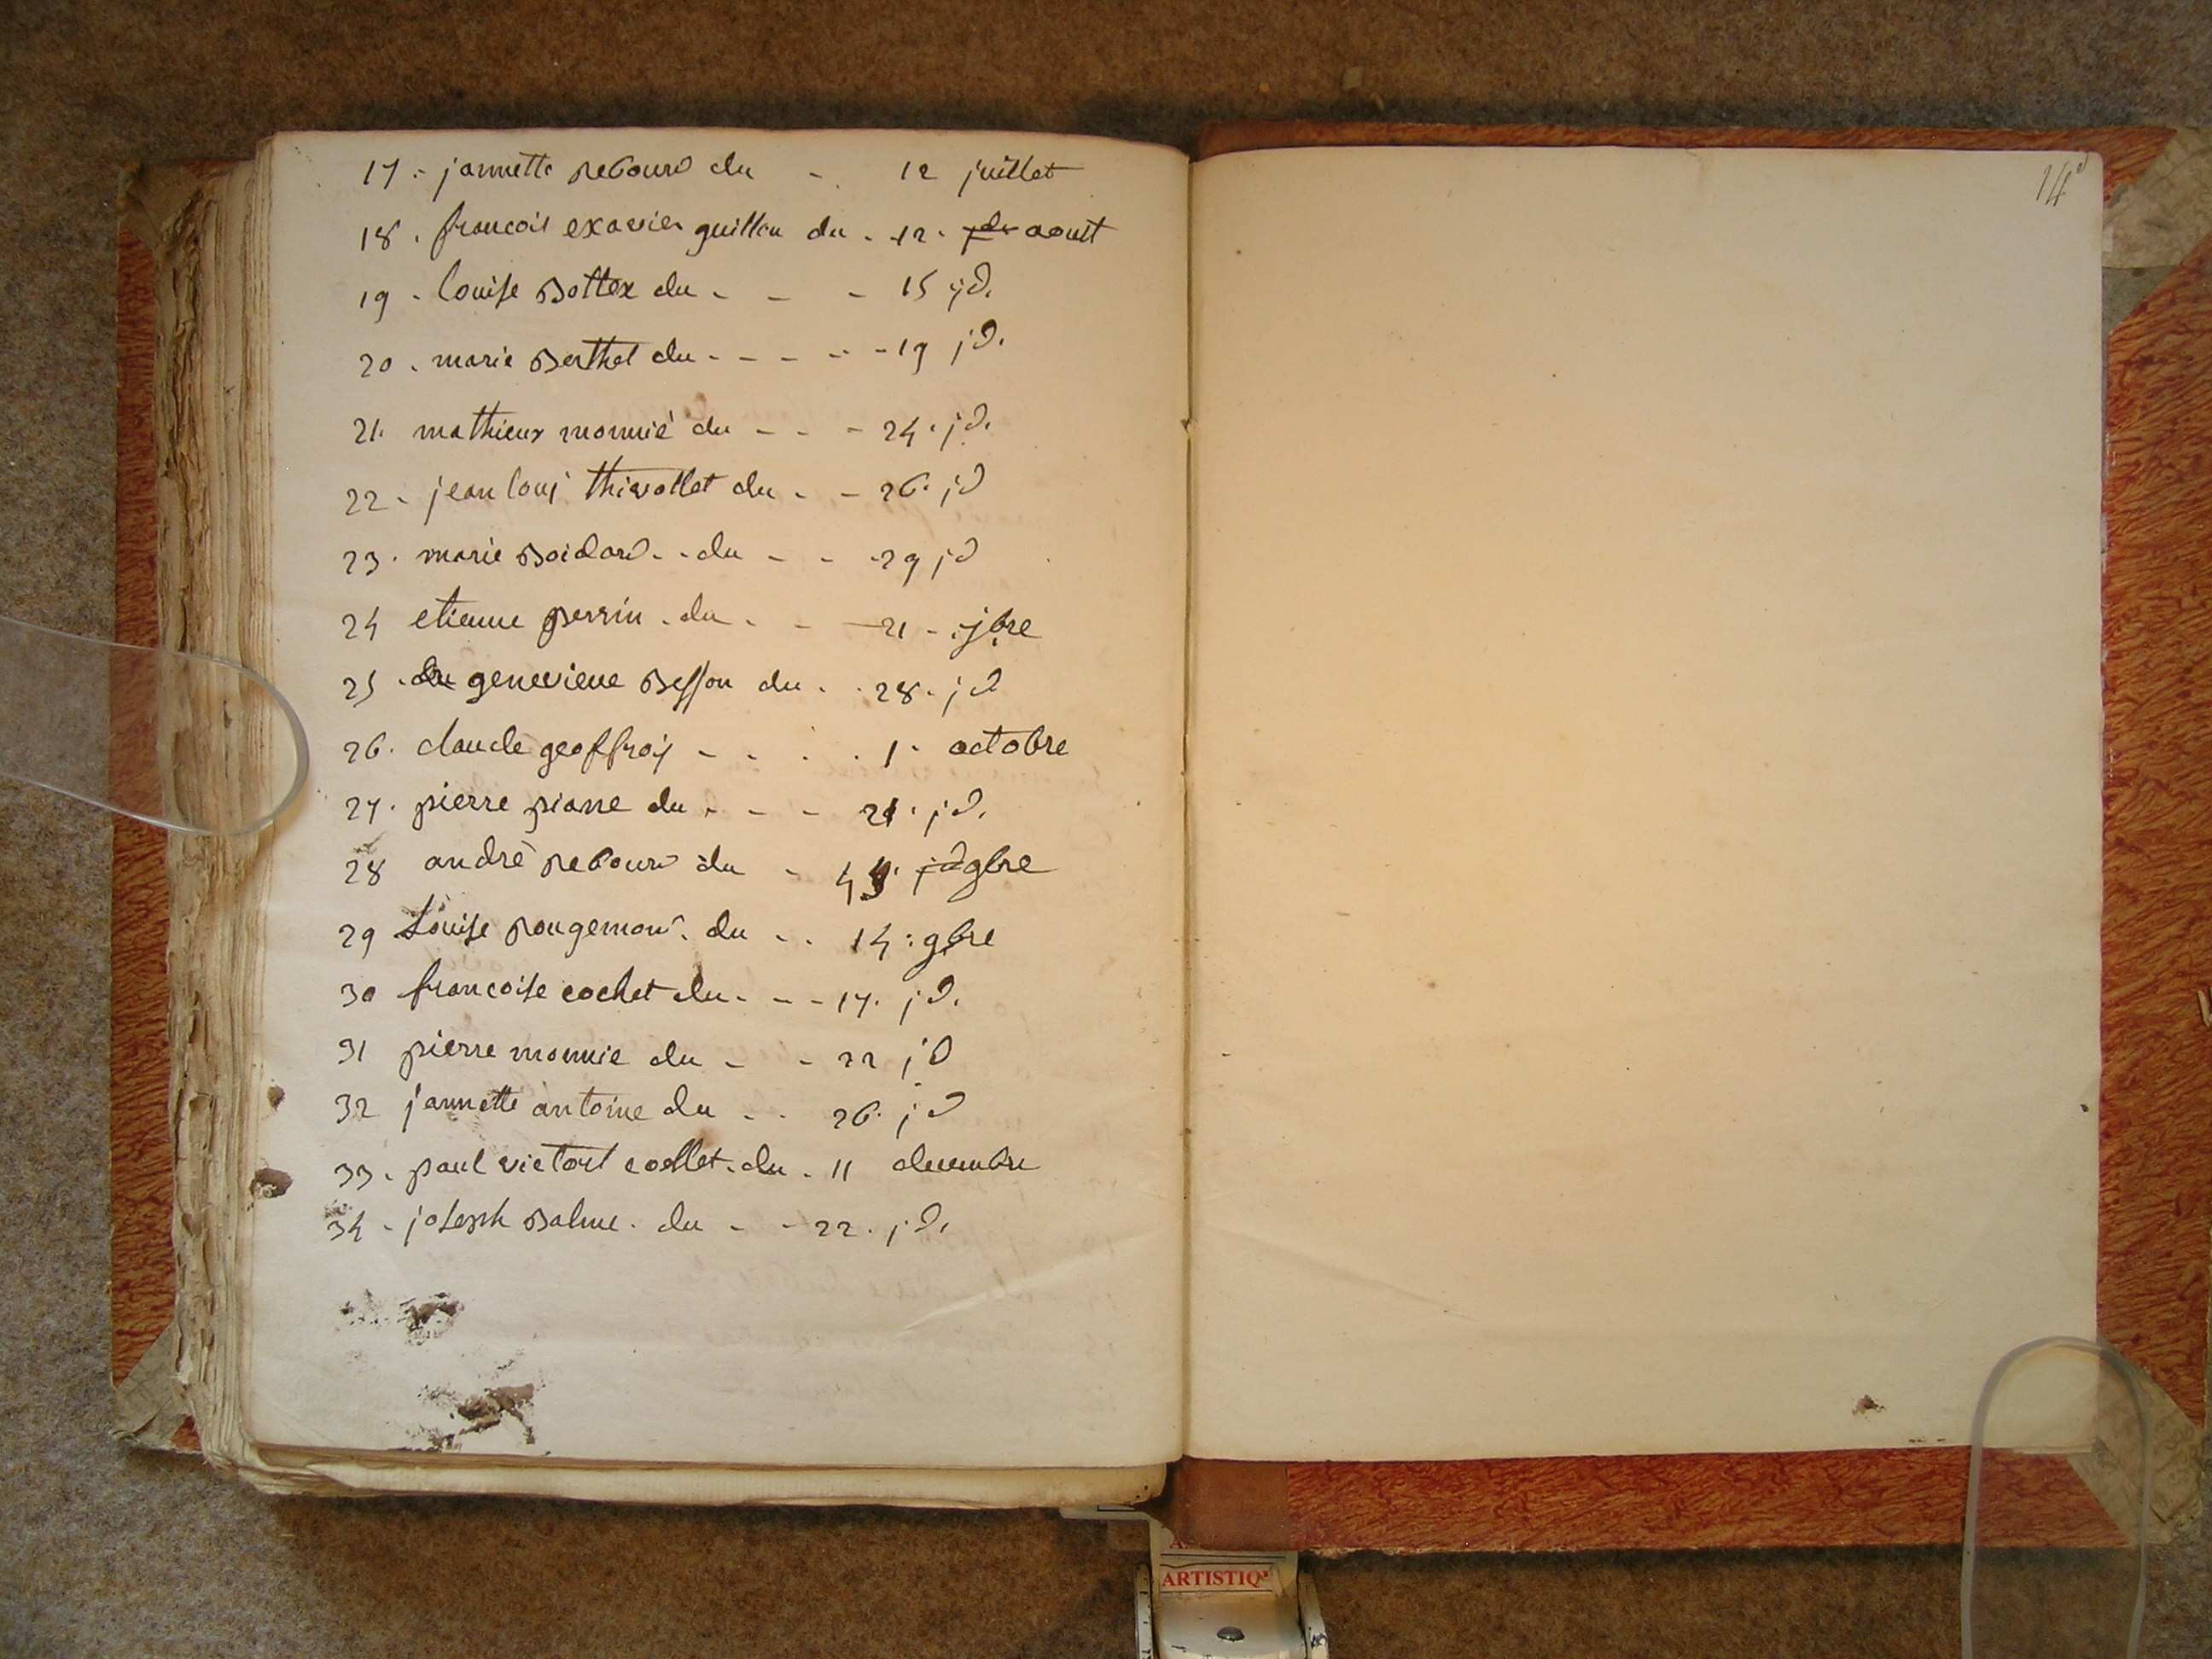 17 - jannette rebour du - 12 juillet
18 . francois exavier guillon du - 12 - aoust
19 - louise Bottex du - - - 15 jd.
20 . marie Berthet du - - - - - 19 jd.
21. mathieux monnié du - - - 24 . jd.
22 - jean loui thivollet du - - 26. jd
23 . marie Boidard - - du - - - 29 jd
24 etienne perrin . du - - - 21 - 7bre
25 . du genevieve Besson du . . 28 . jd
26 . claude geoffroy - - . . 1 - octobre
27 . pierre piarre du . - - 21 . jd.
28 andré rebour du - 4 jd 9bre
29 Louise rougemon . du - . 14 : 9bre
30 francoise cochet du - - - 17 . jd.
31 pierre monnie du - - 22 jd
32 jannette antoine du - . 26 . jd
33 . paul victort collet . du . 11 decembre
34 - joseph Balme . du - - 22 . jd.
14
ARTISTIQ